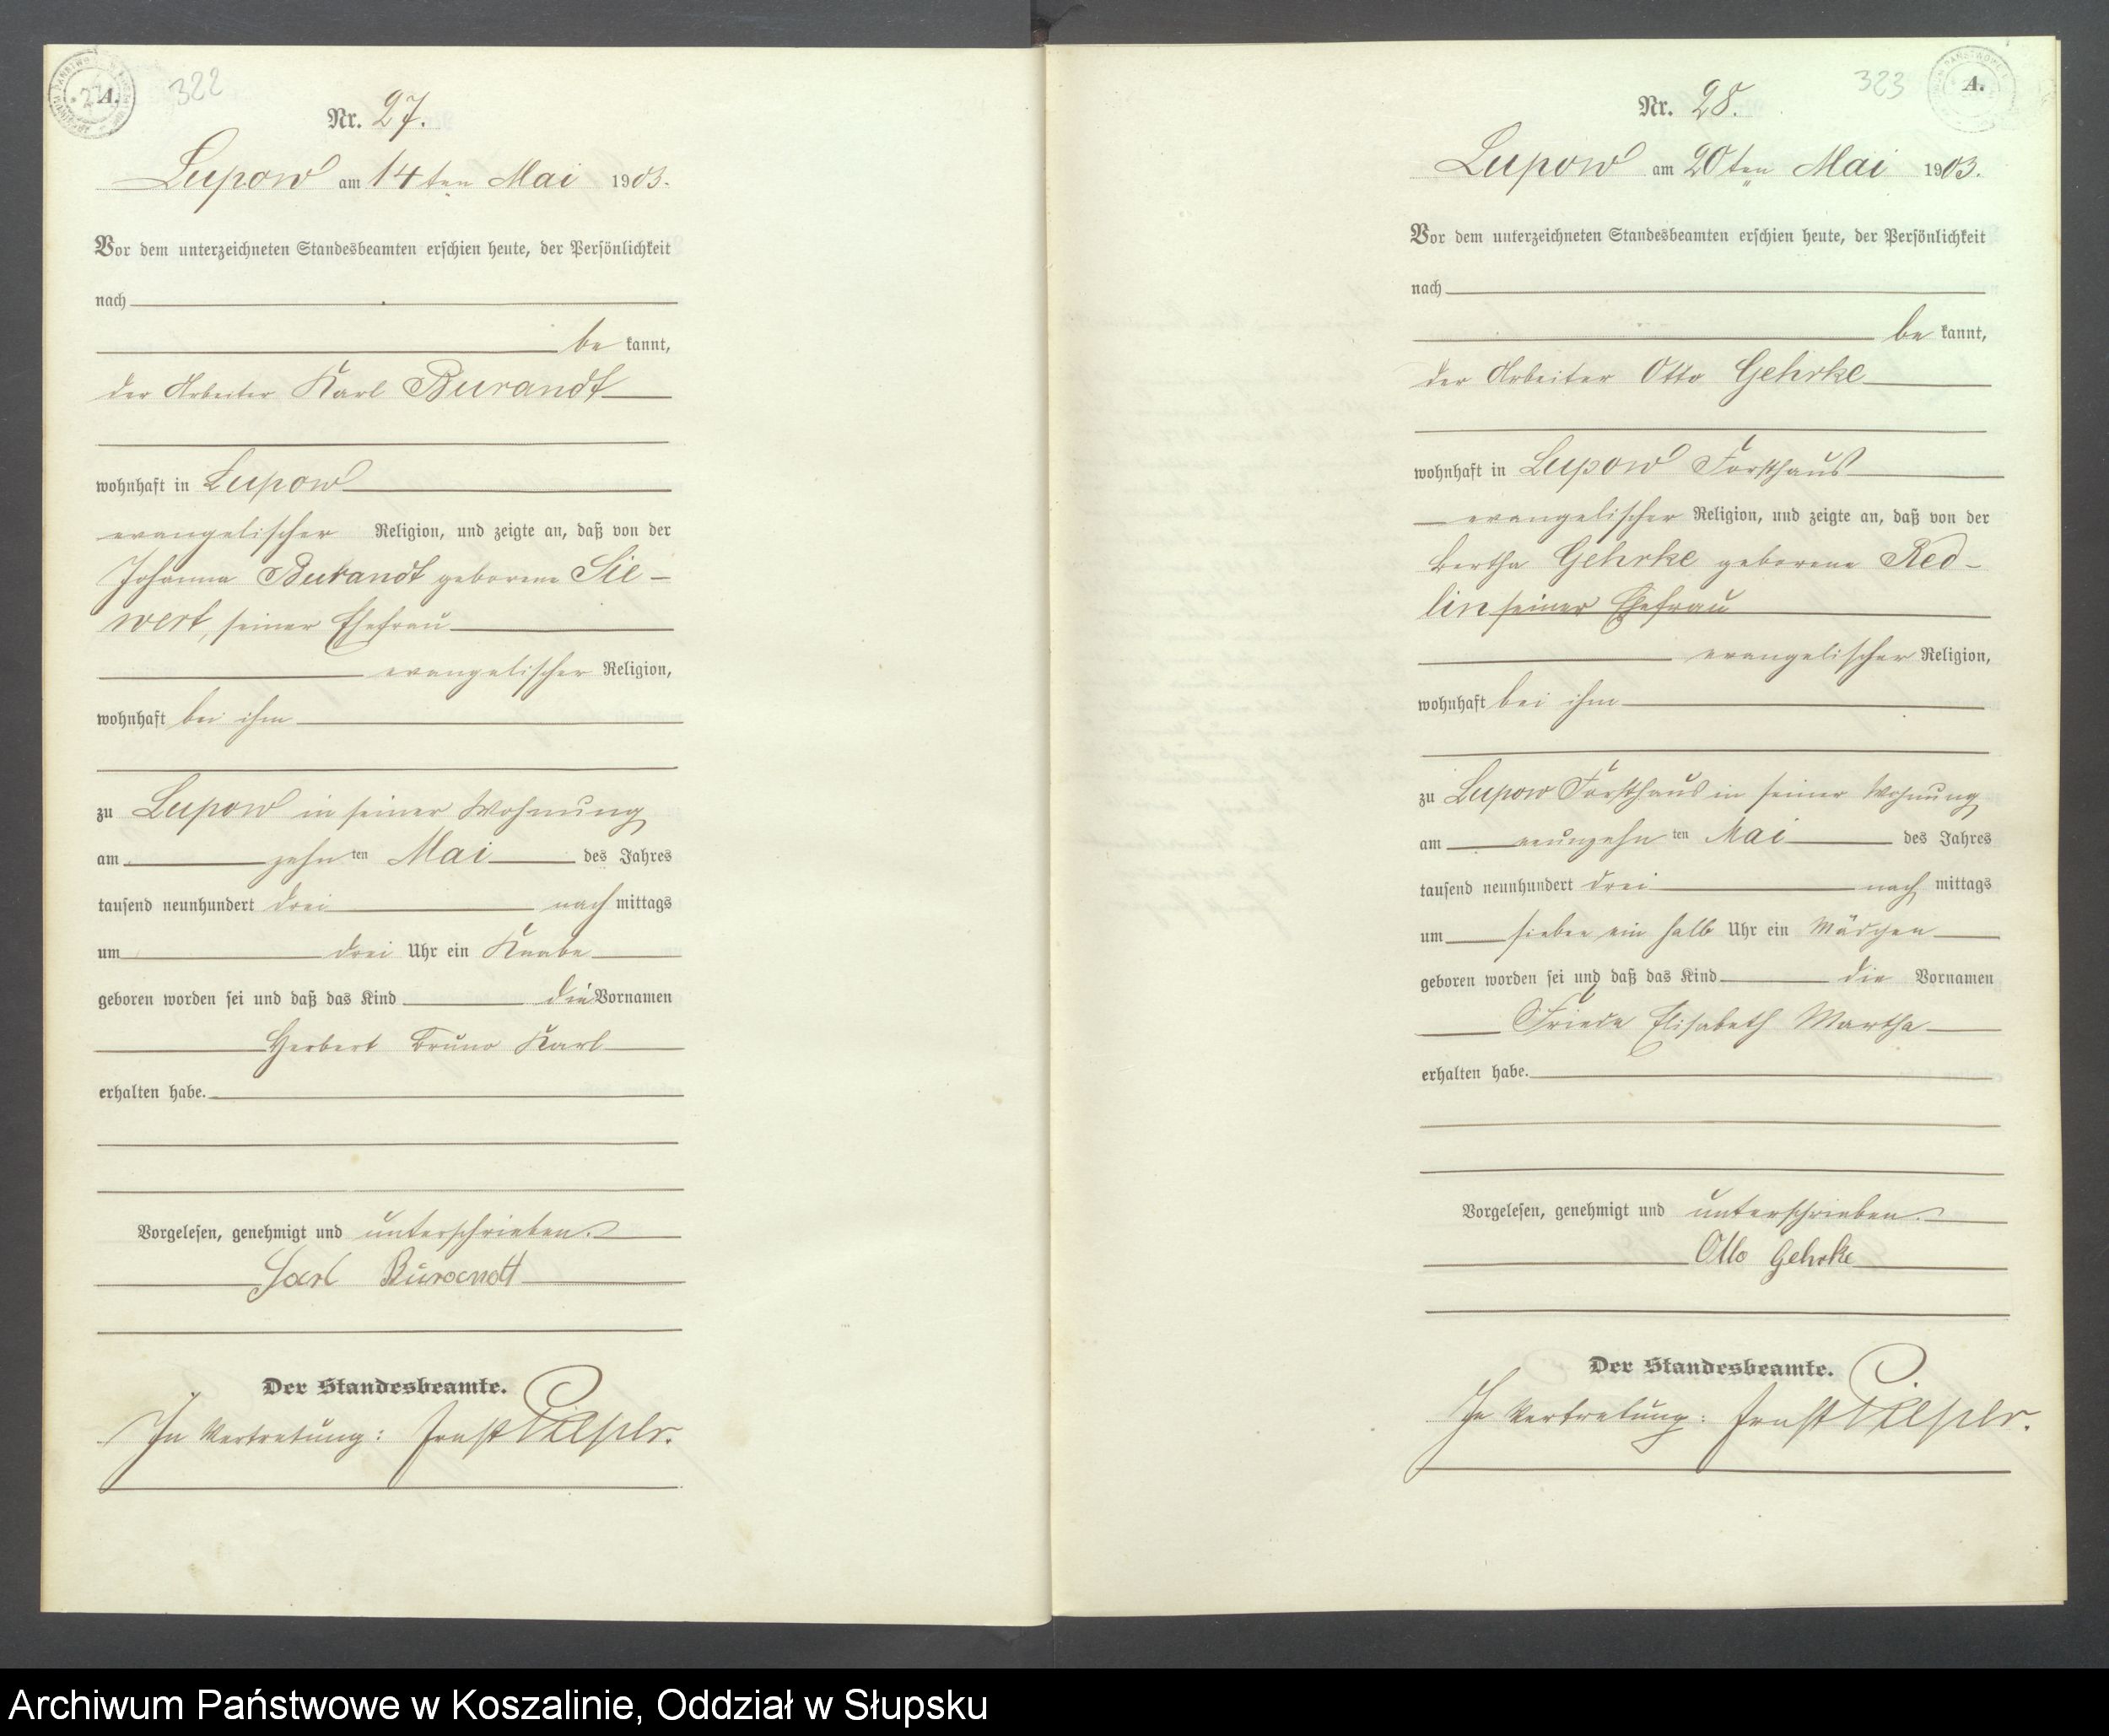 A.
322
Nr. 27.
Lupow am 14ten Mai 1903.
Vor dem unterzeichneten Standesbeamten erschien heute, der Persönlichkeit
nach
be kannt,
der Arbeiter Karl Burandt
wohnhaft in Lupow
evangelischer Religion, und zeigte an, daß von der
Johanna Burandt geborene Sie-
wert, seiner Ehefrau
evangelischer Religion,
wohnhaft bei ihm
zu Lupow in seiner Wohnung
am zehn ten Mai des Jahres
tausend neunhundert drei nach mittags
um drei Uhr ein Knabe
geboren worden sei und daß das Kind die Vornamen
Herbert Bruno Karl
erhalten habe.
Vorgelesen, genehmigt und unterschrieben.
Karl Burandt
Der Standesbeamte.
In Vertretung: Ernst
323
A.
Nr. 28.
Lupow am 20ten Mai 1903.
Vor dem unterzeichneten Standesbeamten erschien heute, der Persönlichkeit
nach
be kannt,
der Arbeiter Otto Gehrke
wohnhaft in Lupow Forsthaus
evangelischer Religion, und zeigte an, daß von der
Bertha Gehrke geborene Red-
lin seiner Ehefrau
evangelischer Religion,
wohnhaft bei ihm
zu Lupow Forsthaus in seiner Wohnung
am neunzehn ten Mai des Jahres
tausend neunhundert drei nach mittags
um sieben ein halb Uhr ein Mädchen
geboren worden sei und daß das Kind die Vornamen
Frieda Elisabeth Martha
erhalten habe.
Vorgelesen, genehmigt und unterschrieben.
Otto Gehrke
Der Standesbeamte.
In Vertretung: Ernst
Archiwum Państwowe w Koszalinie, Oddział w Słupsku